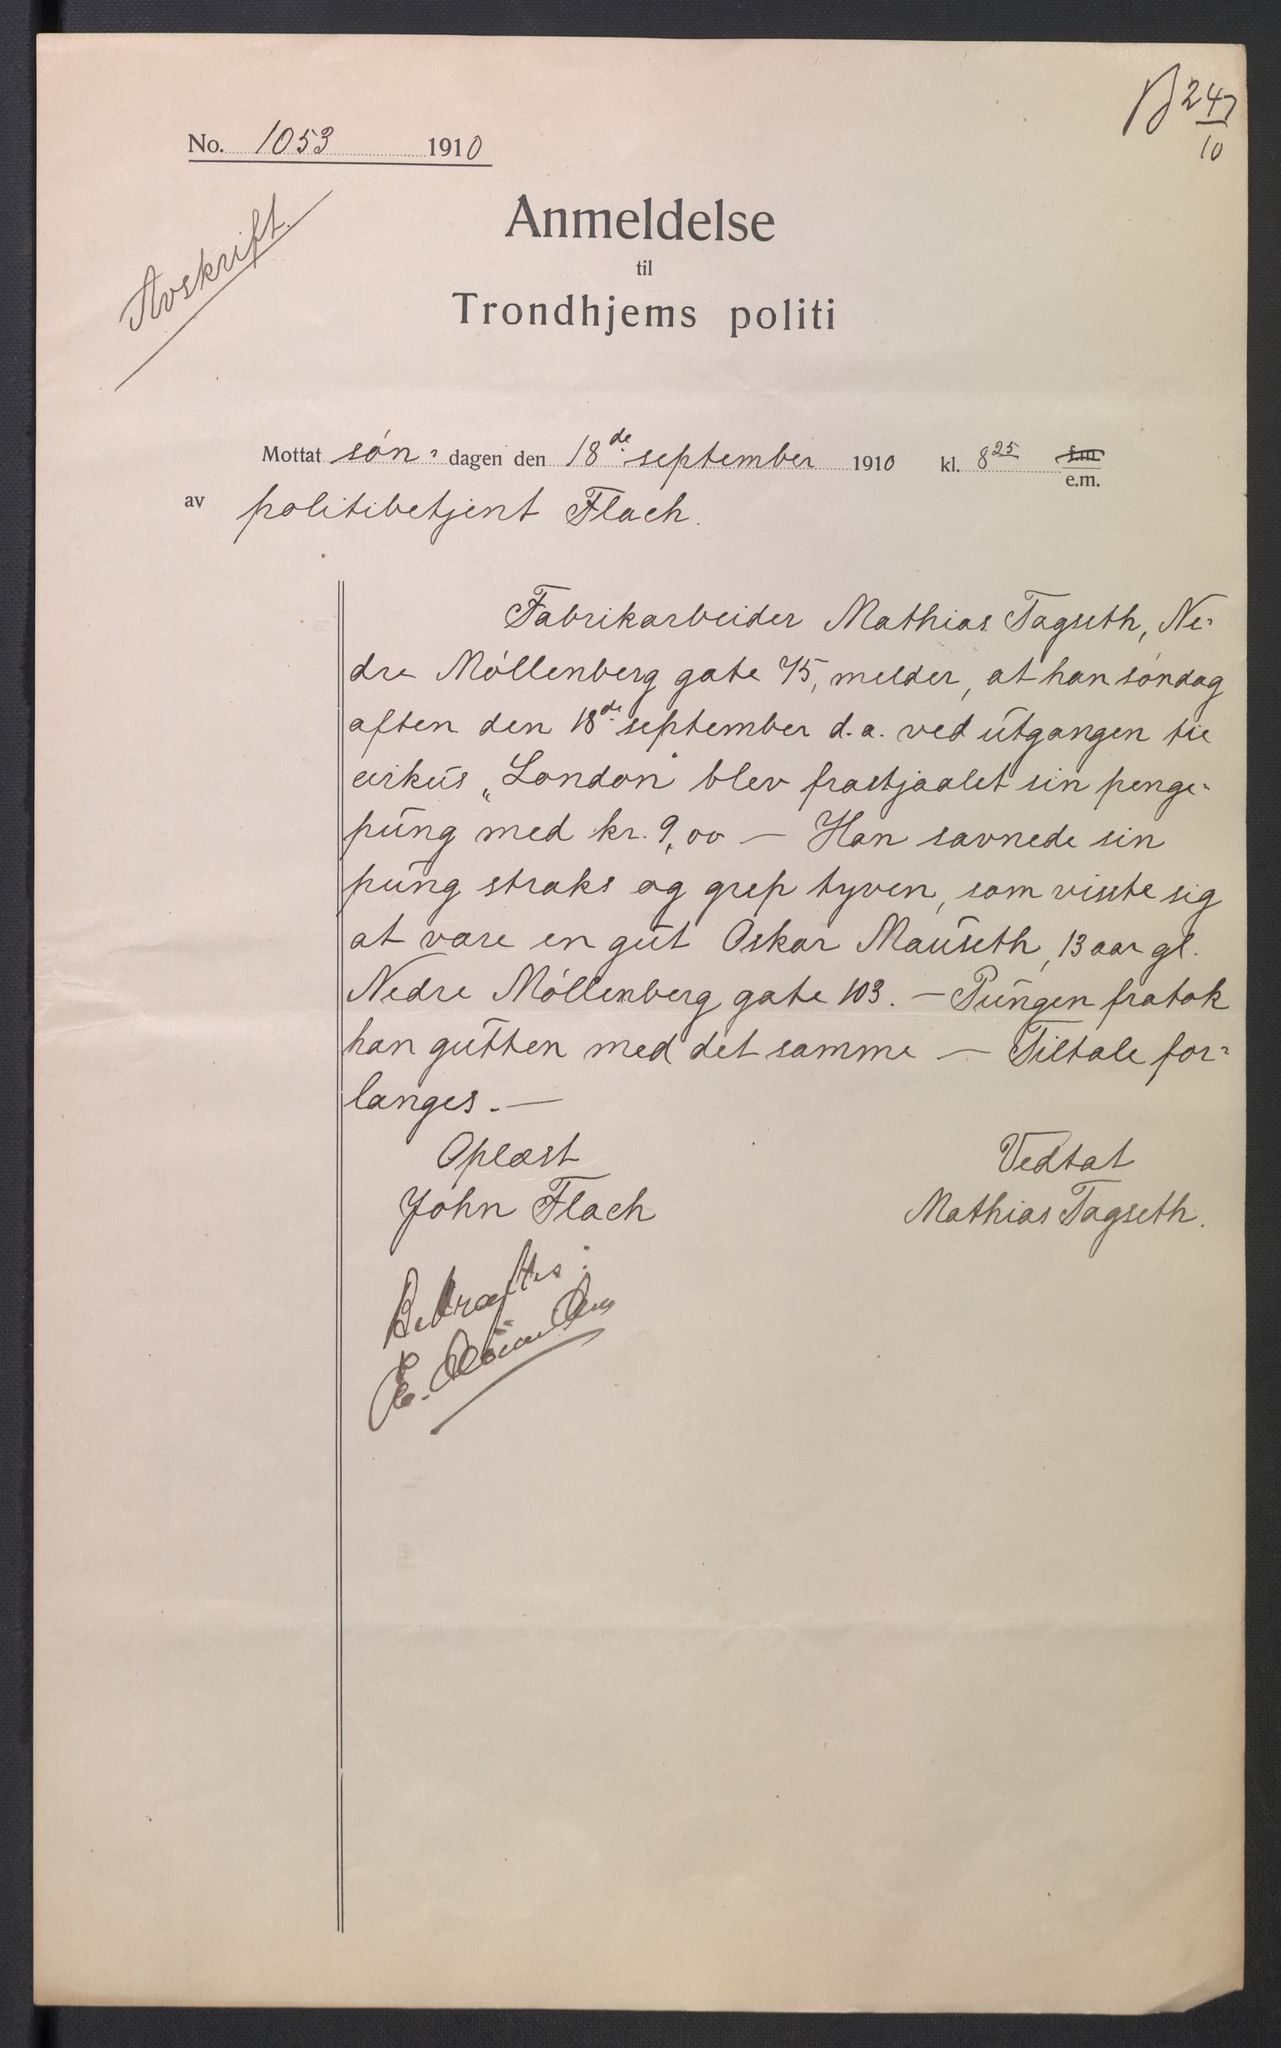 B 247
10
No. 1053 1910
Avskrift.
Anmeldelse
til
Trondhjems politi
Mottat søn- dagen den 18de september 1910 kl. 8 25 f.m.
e.m.
av politibetjent Flach.
Fabrikarbeider Mathias Tagseth, Ne-
dre Møllenberg gate 75, melder, at han søndag
aften den 18de september d.a. ved utgangen til
cirkus „London" blev frastjaalet sin penge-
pung med kr. 9,00 — Han savnede sin
pung straks og grep tyven, som viste sig
at være en gut Oskar Mauseth, 13 aar gl.
Nedre Møllenberg gate 103. — Pungen fratok
han gutten med det samme — Tiltale for-
langes. —
Oplæst Vedtat
John Flach Mathias Tagseth.
Bekræftes:
E.